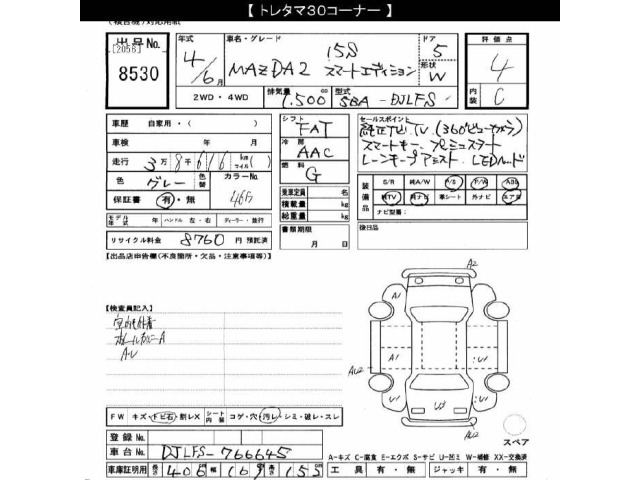 【 トレタマ30コーナー 】
(複合機)対応用紙
出品No.
[2056]
8530
年式
4/6月
車名・グレード
MAZDA2
15S
スマートエディション
ドア
5
形状
W
2WD・4WD
排気量
1,500cc
型式
5BA-DJLFS
評価点
4
内装
C
車歴 自家用・( )
車検 年 月
走行 3万8千616km(マイル)
色 グレー 色替 カラーNo. 46G
保証書 有・無
モデル年式 年 ハンドル 左・右 ディーラー・並行
リサイクル料金 8760円 預託済
シフト FAT
冷房 AAC
燃料 G
乗車定員 名
積載量 kg
総重量 kg
書類期限
月 日
セールスポイント
純正ナビ.TV(360°ビューカメラ)
スマートキー プッシュスタート
レーンキープアシスト LEDヘッド
装備品 S/R 純A/W P/S P/W ABS
純TV 純ナビ 革シート 外ナビ エアB
ナビ型番:
後日品
【出品店申告欄(不良箇所・欠品・注意事項等)】
【検査員記入】
ホイールカバーA
A・U
A2
A1
A1
U1
U1
AU2
AU2
U3
スペア
FW キズ・トビ石・割レX シート内装 コゲ・穴・汚レ・シミ・破レ・スレ
登録No.
車台No. DJLFS-766645
車庫証明用 長 406 幅 169 高さ 155
A-キズ C-腐食 E-エクボ S-サビ U-凹ミ W-補修 XX-交換済
工具 有・無 ジャッキ 有・無